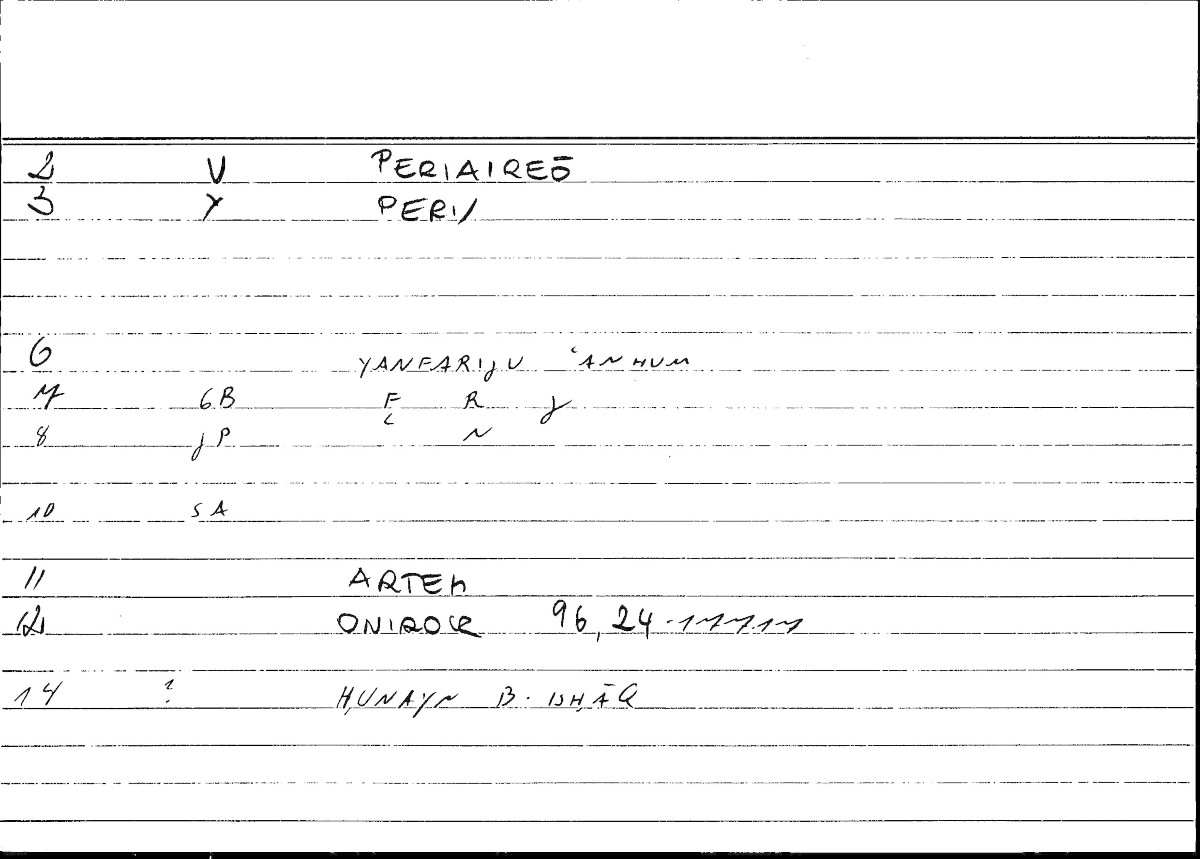 2 V PERIAIREŌ
3 Y PERI/
6 YANFARIJU ʿANHUM
7 GB F R J
8 JP ʿ N
10 SA
11 ARTEM
12 ONIROCR 96,24-177.17
14 ? ḤUNAYN B. ISḤĀQ